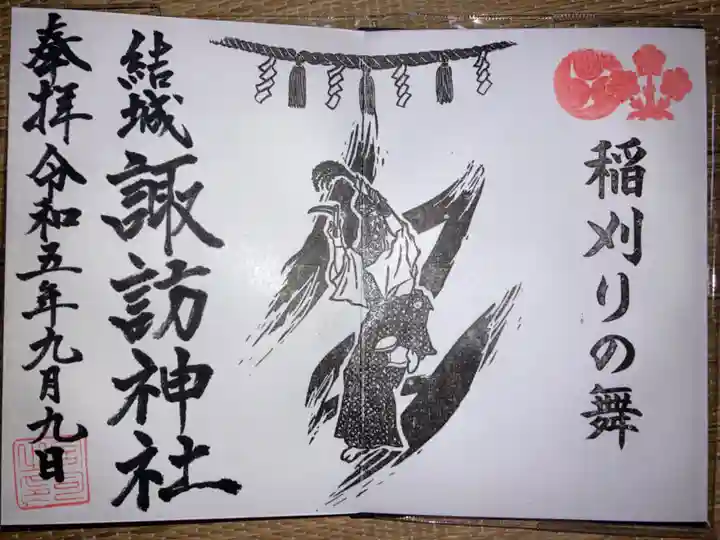 稲刈りの舞
結城
諏訪神社
奉拝
令和五年九月九日